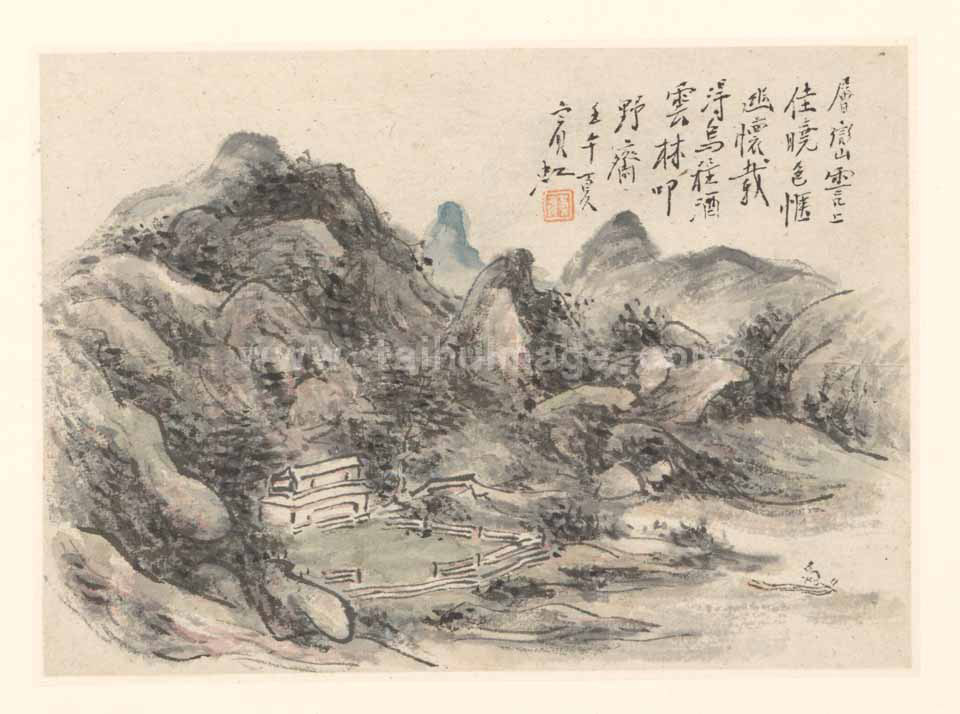 層巒霅上
佳曉色愜
幽懷載
得烏程酒
雲林叩
野齋
壬午夏
賓虹
www.taihuimage.com